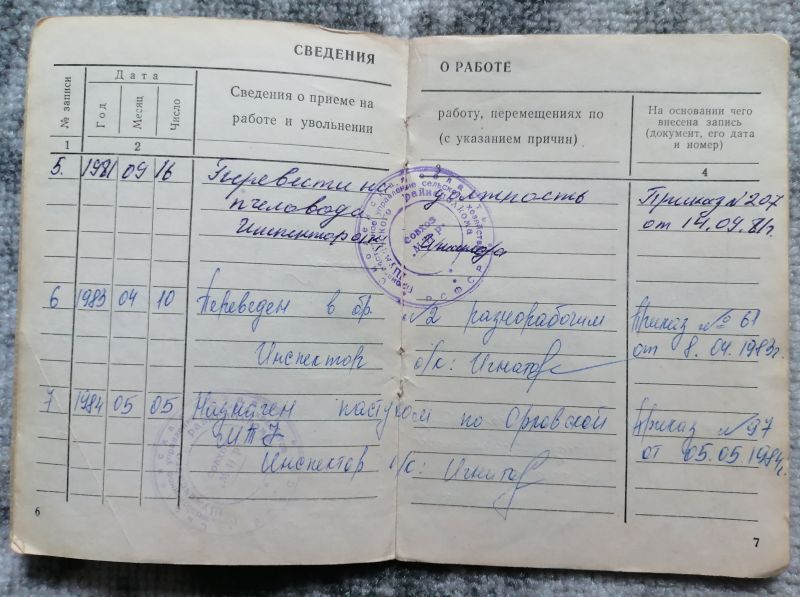 СВЕДЕНИЯ О РАБОТЕ
№ записи
Дата
Год Месяц Число
Сведения о приеме на работу, перемещениях по
работе и увольнении (с указанием причин)
На основании чего
внесена запись
(документ, его дата
и номер)
1 2 3 4
5. 1981 09 16 Перевести на должность Приказ № 207
пчеловода от 14.09.81г.
Инспектор о/к
Совхоз
"МИР"
РСФСР
6 1983 04 10 Переведен в бр. №2 разнорабочим Приказ № 61
от 8.04.1983г.
Инспектор о/к: Игнатов
7 1984 05 05 Назначен пастухом по Орловской Приказ № 97
от 05.05.1984г.
Инспектор о/к: Игнатов
6
7